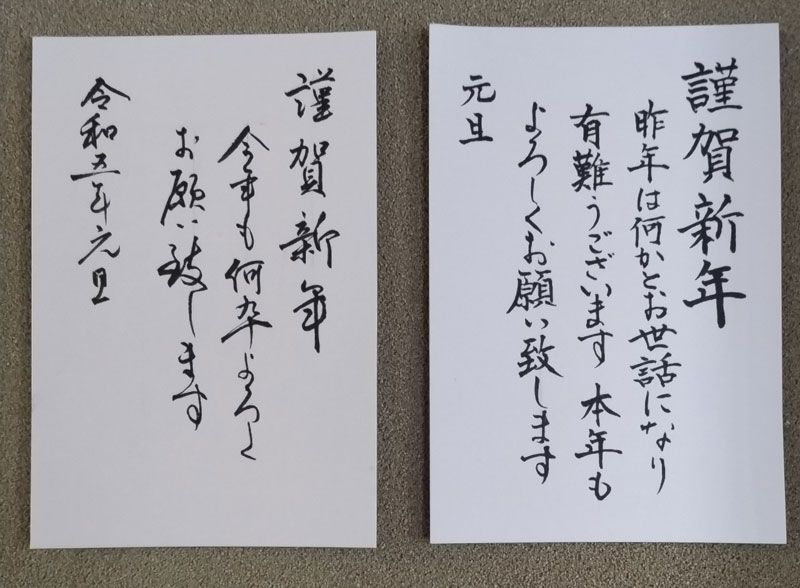 謹賀新年
昨年は何かとお世話になり
有難うございます 本年も
よろしくお願い致します
元旦
謹賀新年
今年も何卒よろしく
お願い致します
令和五年元旦